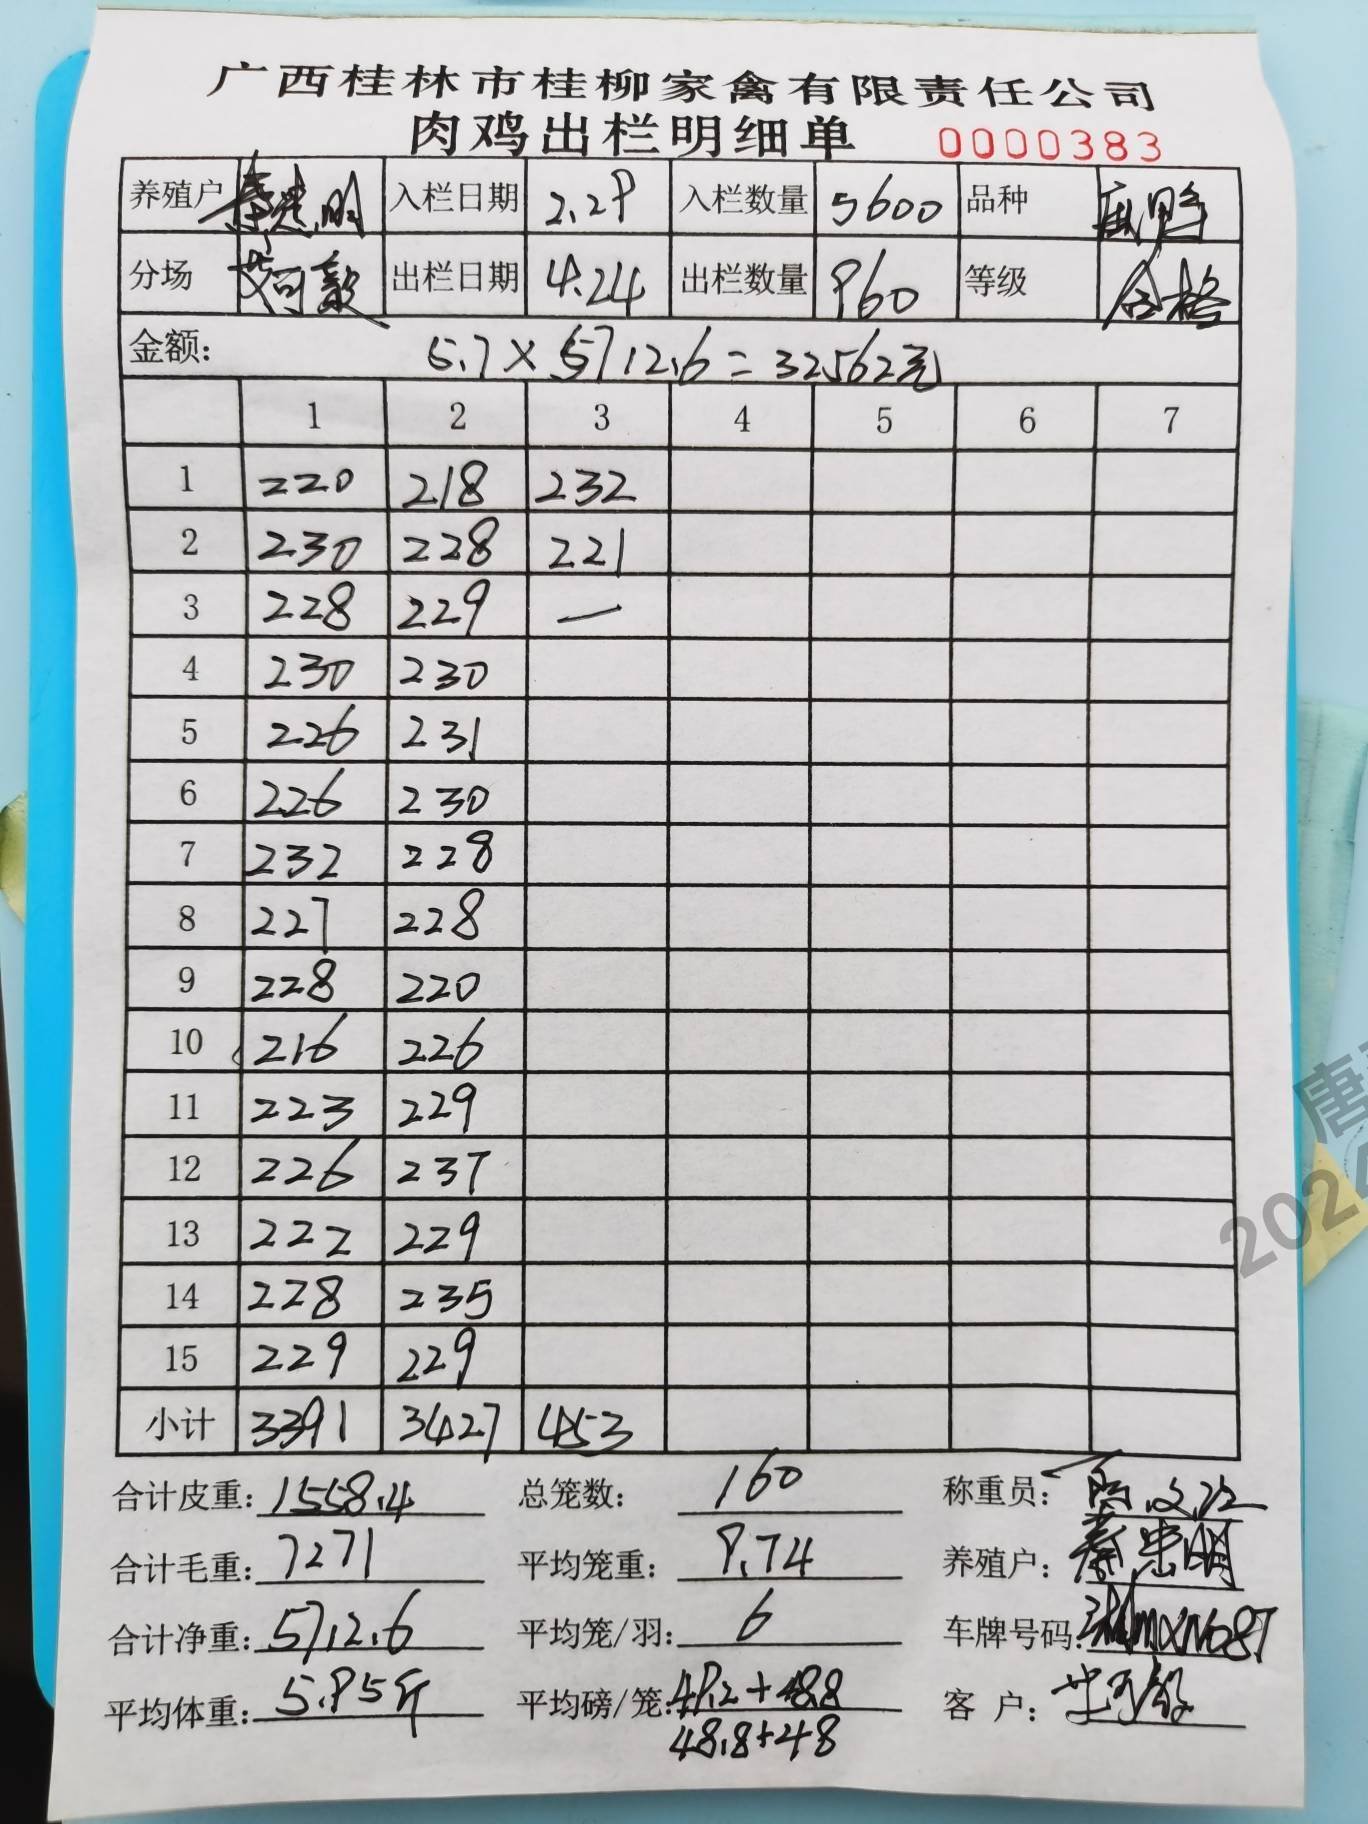 广西桂林市桂柳家禽有限责任公司
肉鸡出栏明细单 0000383
养殖户 入栏日期 2.29 入栏数量 5600 品种 麻鸡
分场 出栏日期 4.24 出栏数量 960 等级 合格
金额: 5.7×5712.6=32562元
1 2 3 4 5 6 7
1 220 218 232
2 230 228 221
3 228 229 —
4 230 230
5 226 231
6 226 230
7 232 228
8 227 228
9 228 220
10 216 226
11 223 229
12 226 237
13 222 229
14 228 235
15 229 229
小计 3391 3427 453
合计皮重: 1558.4 总笼数: 160 称重员:
合计毛重: 7271 平均笼重: 9.74 养殖户:
合计净重: 5712.6 平均笼/羽: 6 车牌号码:
平均体重: 5.95斤 平均磅/笼: 49.2+48.8 客 户:
48.8+48
唐
2024